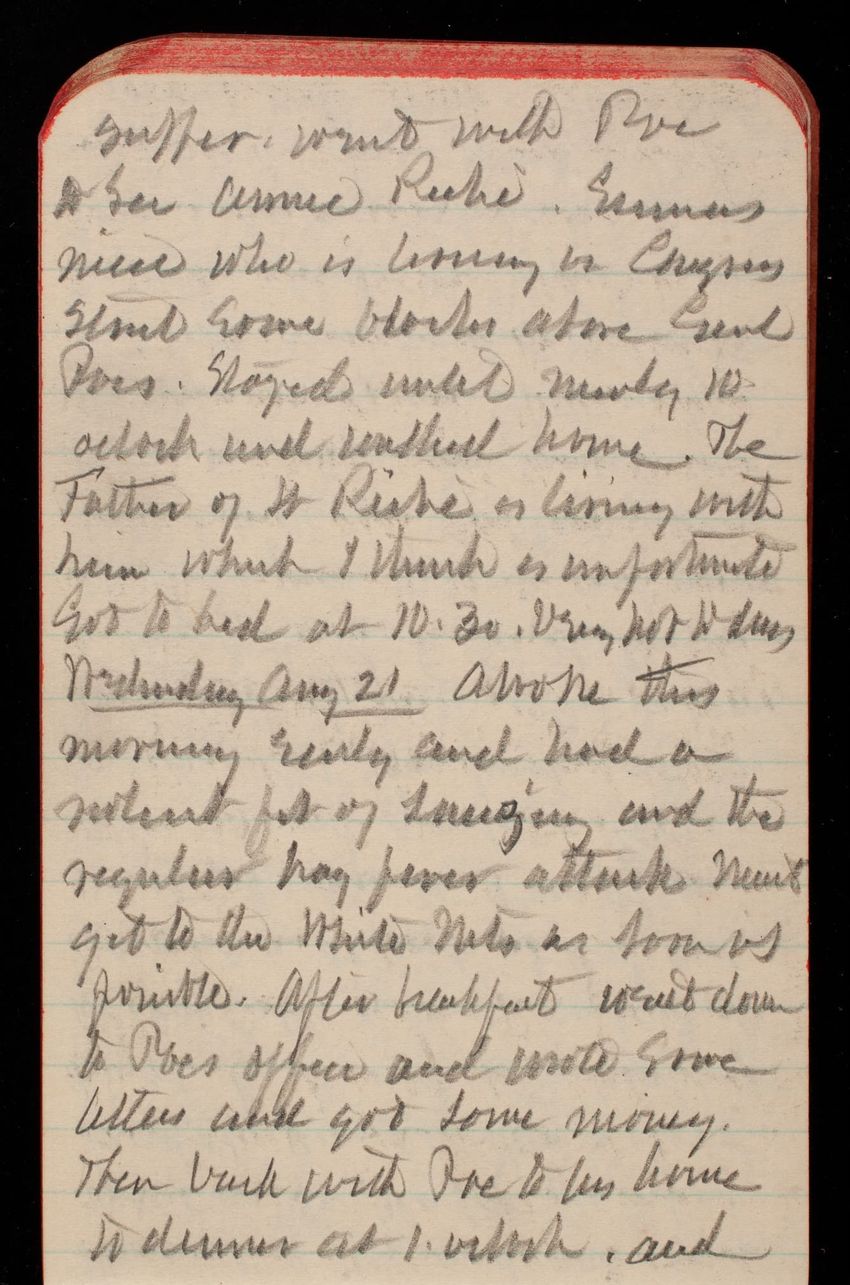 supper. went with Poe
to see Annie Riché. Emmas
niece who is living in Congress
Street some blocks above Genl
Poes. Stayed until nearly 10
oclock and walked home. The
Father of Lt Riché is living with
him which I think is unfortunate
Got to bed at 10.30. Very hot to day
Wednesday Aug 21. Awoke this
morning early and had a
violent fit of sneezing and the
regular hay fever attack. Must
get to the White Mts as soon as
possible. After breakfast went down
to Poes office and wrote some
letters and got some money.
Then back with Poe to his home
to dinner at 1. oclock. and